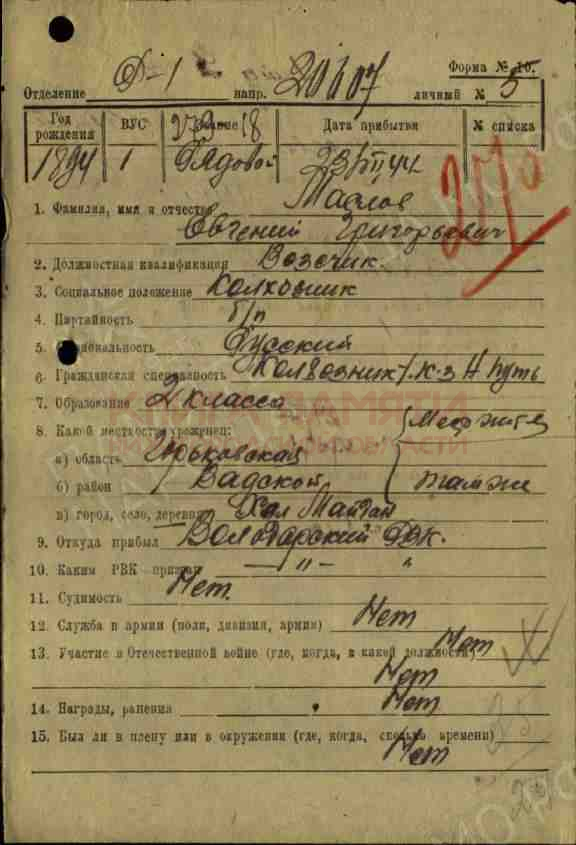 Форма № 10.
Отделение Д-1 напр. 20607 личный № 5
Год рождения ВУС Звание Дата прибытия № списка
1894 1 Рядовой 23/III 44
270
1. Фамилия, имя и отчество Маслов
Евгений Григорьевич
2. Должностная квалификация Возчик.
3. Социальное положение Колхозник
4. Партийность б/п
5. Национальность Русский
6. Гражданская специальность Колхозник к-з Н путь
7. Образование 2 класса
КНИГА ПАМЯТИ
8. Какой местности уроженец: Мест жит
а) область Горьковская
б) район Вадской там же
в) город, село, деревня Майдан
9. Откуда прибыл Володарский РВК.
10. Каким РВК призван — " — "
11. Судимость Нет.
12. Служба в армии (полк, дивизия, армия) Нет
13. Участие в Отечественной войне (где, когда, в какой должности) Нет
Нет
14. Награды, ранения Нет
15. Был ли в плену или в окружении (где, когда, сколько времени)
Нет